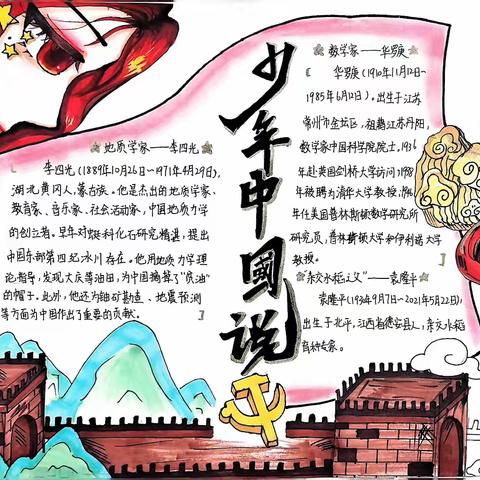 少年中國說
地质学家——李四光
李四光(1889年10月26日~1971年4月29日),
湖北黄冈人,蒙古族。他是杰出的地质学家、
教育家、音乐家、社会活动家,中国地质力学
的创立者。早年对蜓科化石研究精湛,提出
中国东部第四纪冰川存在。他用地质力学理
论指导,发现大庆等油田,为中国摘掉了“贫油”
的帽子。此外,他还为铀矿勘查、地震预测
等方面为中国作出了重要的贡献。
数学家——华罗庚
华罗庚(1910年11月12日~
1985年6月12日)。出生于江苏
常州市金坛区,祖籍江苏丹阳,
数学家中国科学院院士,1936
年赴英国剑桥大学访问1938
年被聘为清华大学教授,1946
年任美国普林斯顿数学研究所
研究员,普林斯顿大学和伊利诺大学
教授。
“杂交水稻之父”——袁隆平
袁隆平(1930年9月7日~2021年5月22日),
出生于北平,江西省德安县人,杂交水稻
育种专家。